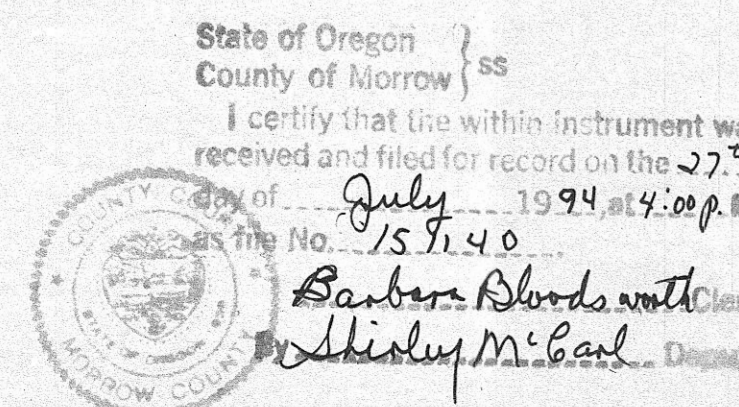 State of Oregon
County of Morrow } ss
I certify that the within instrument wa
received and filed for record on the 27th
day of July 1994, at 4:00 p.
as file No.
Barbara Bloodsworth Cler
By Shirley McCarl Depu
COUNTY COURT
STATE OF OREGON
MORROW COUNTY